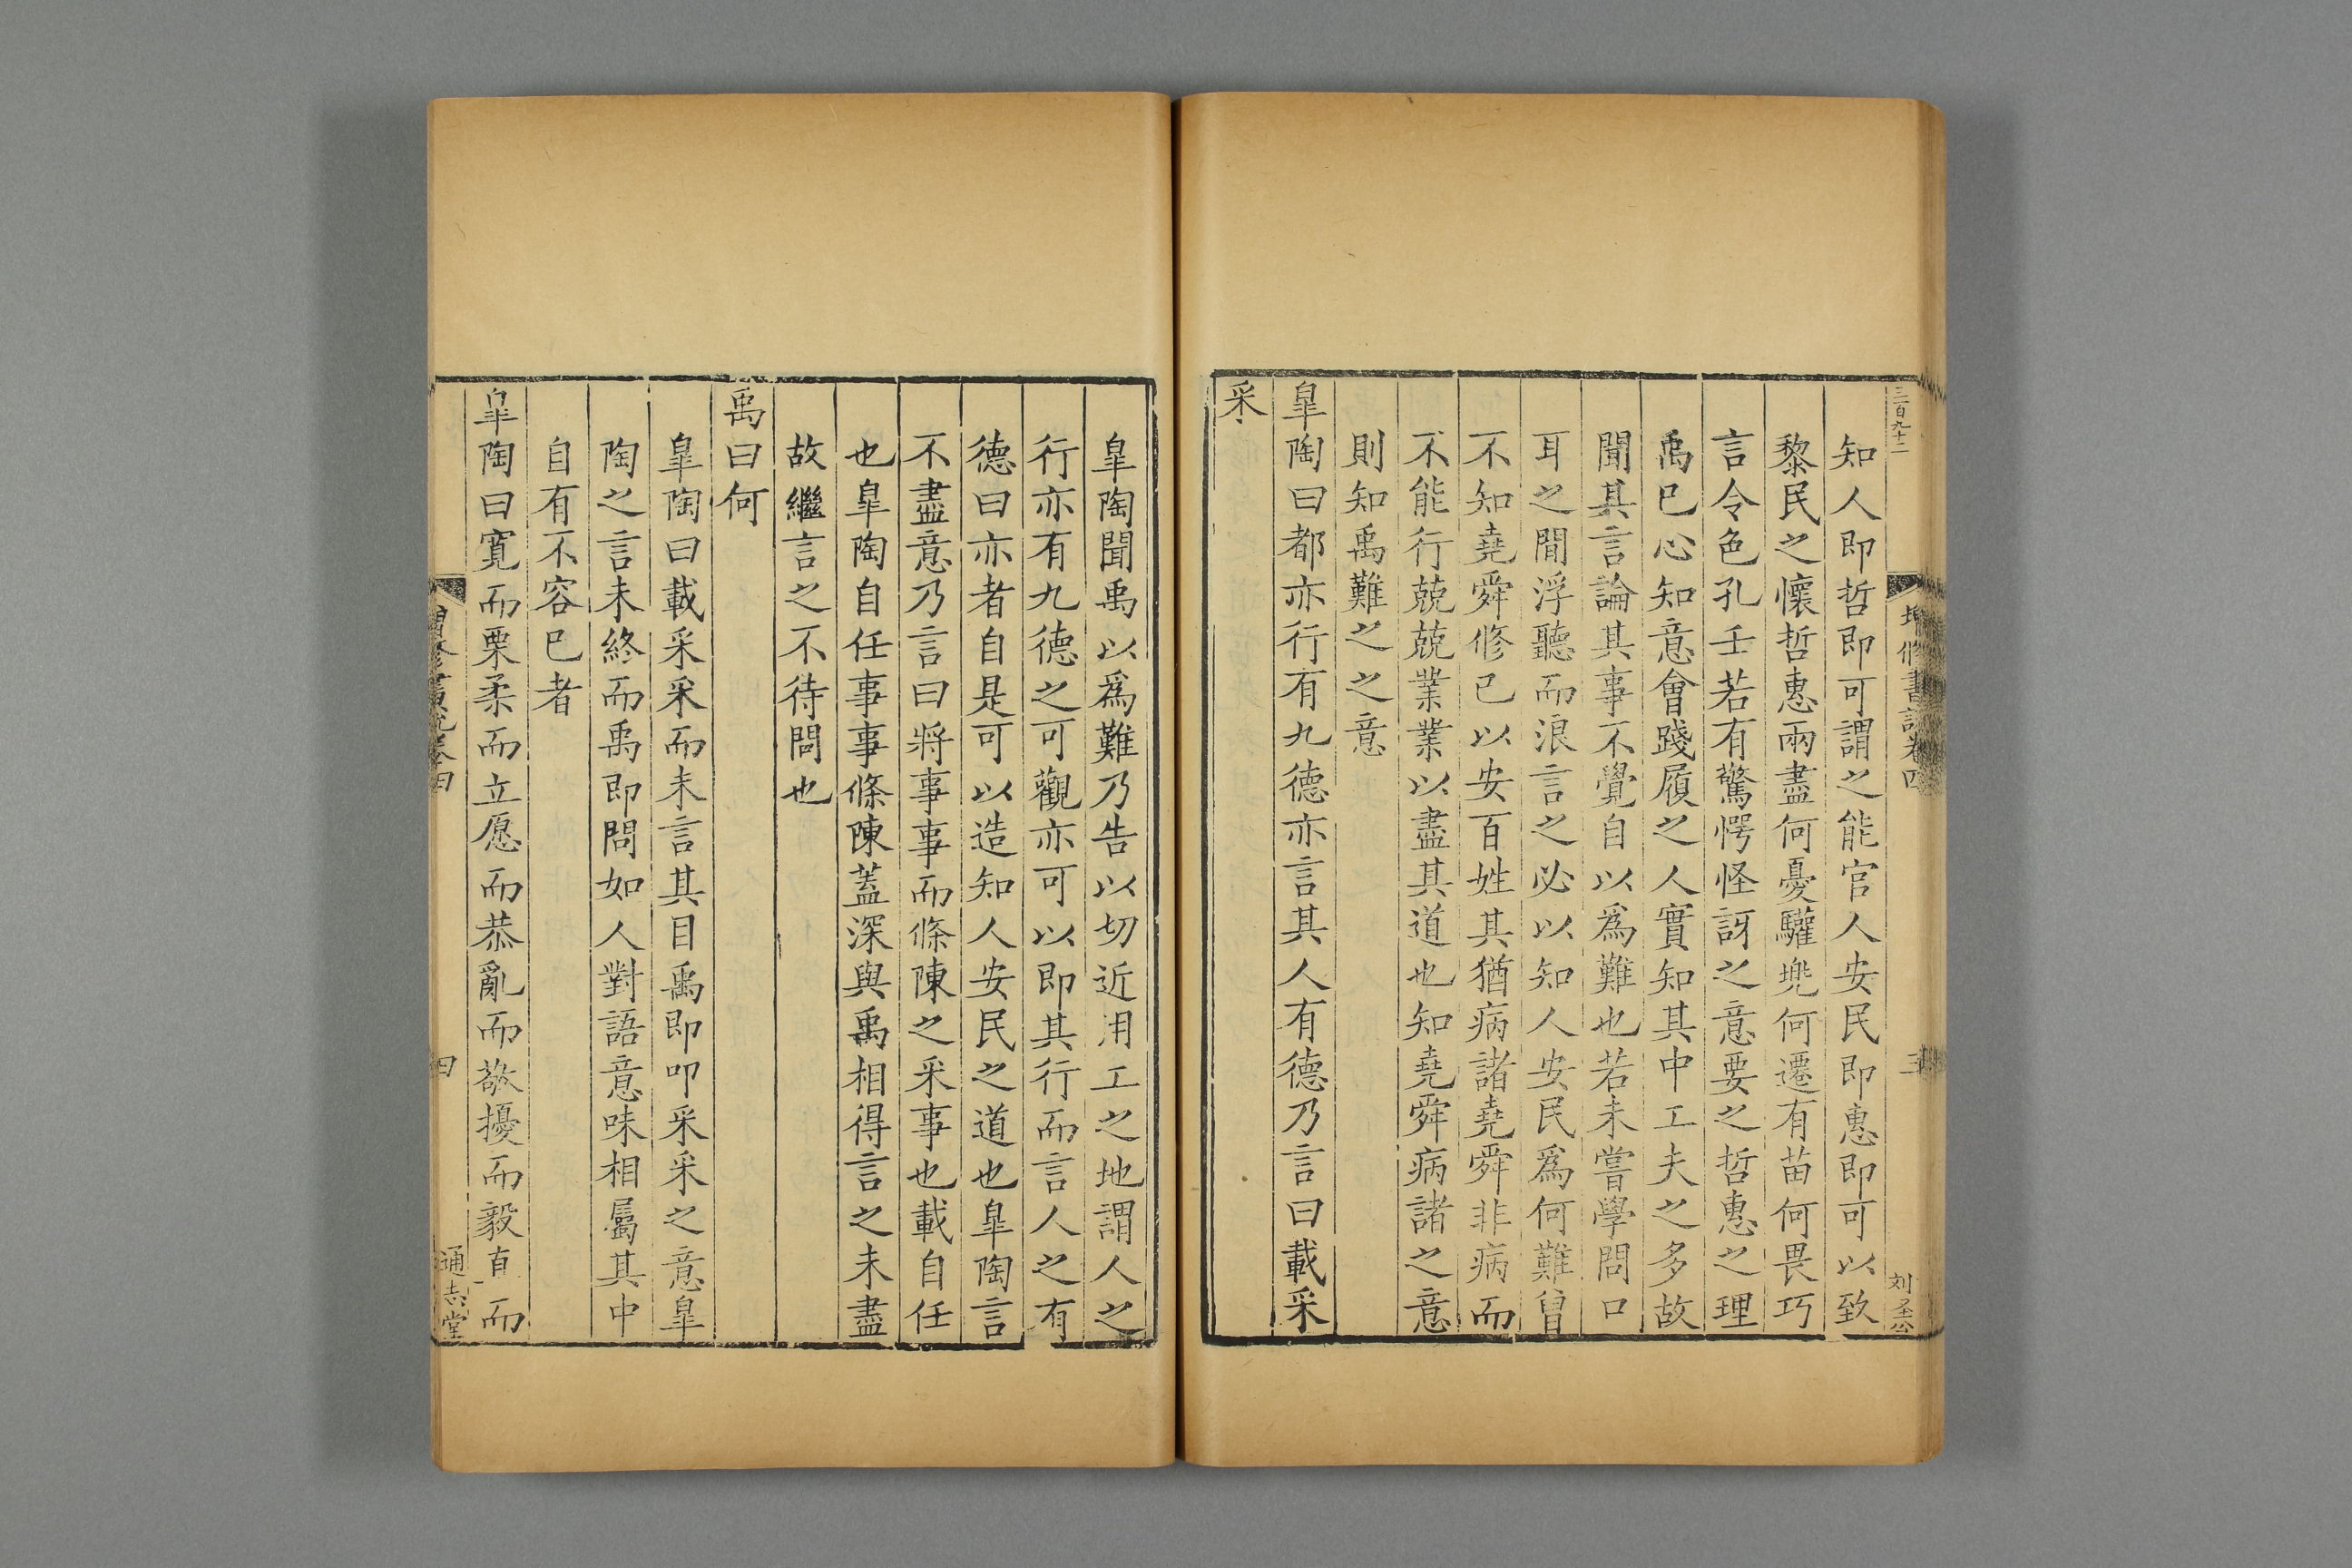 三百九十二
增修書說卷四
三
刘圣公
知人即哲即可謂之能官人安民即惠即可以致
黎民之懷哲惠兩盡何憂驩兜何遷有苗何畏巧
言令色孔壬若有驚愕怪訝之意要之哲惠之理
禹已心知意會踐履之人實知其中工夫之多故
聞其言論其事不覺自以爲難也若未嘗學問口
耳之間浮聽而浪言之必以知人安民爲何難曾
不知堯舜修已以安百姓其猶病諸堯舜非病而
不能行兢兢業業以盡其道也知堯舜病諸之意
則知禹難之之意
臯陶曰都亦行有九德亦言其人有德乃言曰載采
采
臯陶聞禹以爲難乃告以切近用工之地謂人之
行亦有九德之可觀亦可以即其行而言人之有
德曰亦者自是可以造知人安民之道也臯陶言
不盡意乃言曰將事事而條陳之采事也載自任
也臯陶自任事事條陳蓋深與禹相得言之未盡
故繼言之不待問也
禹曰何
臯陶曰載采采而未言其目禹即叩采采之意臯
陶之言未終而禹即問如人對語意味相屬其中
自有不容已者
臯陶曰寛而栗柔而立愿而恭亂而敬擾而毅直而
增修書說卷四
四
通志堂